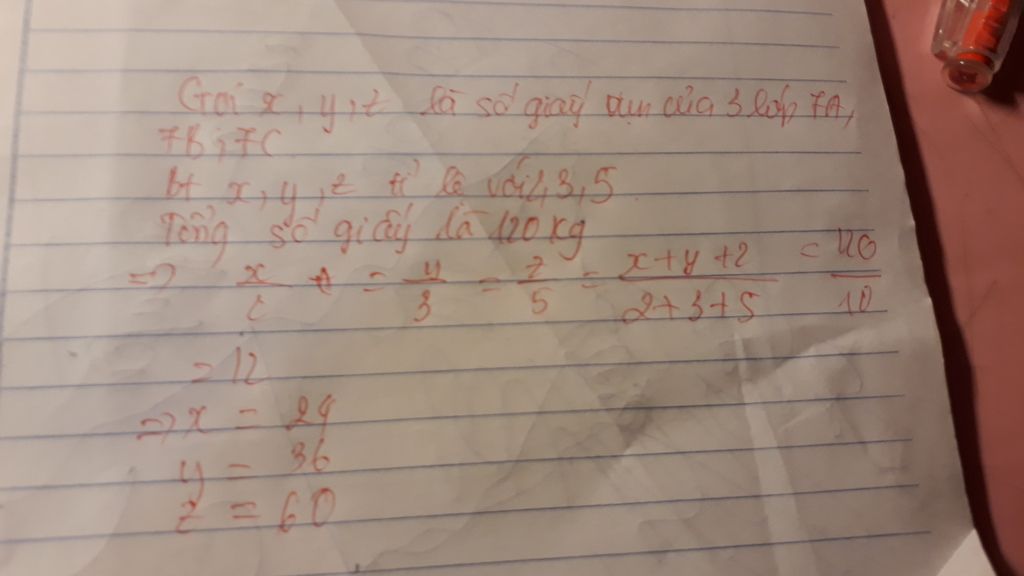 Gọi x, y, z là số giấy vụn của 3 lớp 7A,
7B, 7C
bt x, y, z tỉ lệ với 2, 3, 5
Tổng số giấy là 120 kg
=> x/2 = y/3 = z/5 = x+y+z/2+3+5 = 120/10
= 12
=> x = 24
y = 36
z = 60